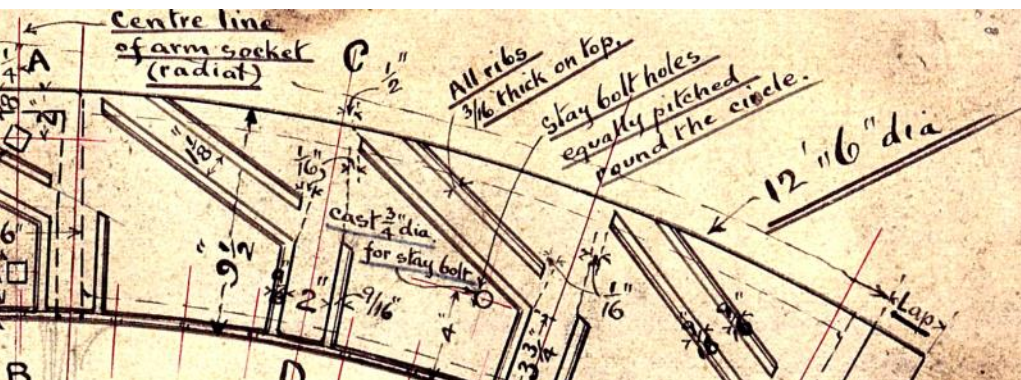 Centre line
of arm socket
(radial)
A
C
1/2"
All ribs
3/16 thick on top.
stay bolt holes
equally pitched
round the circle.
12'"6" dia
1/4"
2"
1/8"
1/16"
cast 3/4" dia.
for stay bolt
6"
9 1/2"
2"
9/16"
4"
1/16
3 3/4"
Lap
B
D